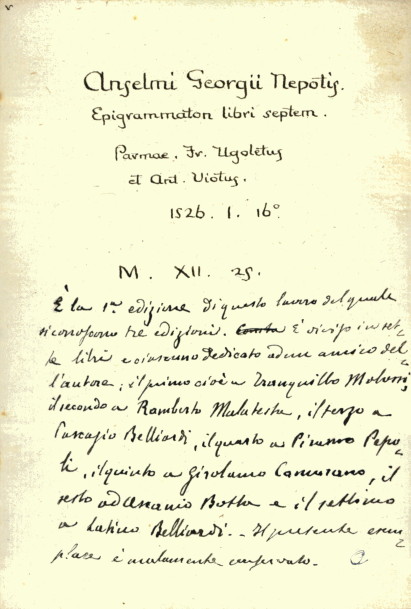 Anselmi Georgii Nepotis.
Epigrammaton libri septem.
Parmae. Fr. Ugoletus
et Ant. Viotus.
1526. I. 16°
M. XII. 25.
È la 1ª edizione di questo lavoro del quale
si conoscono tre edizioni. È diviso in set-
te libri e ciascuno dedicato ad un amico del-
l'autore; il primo cioè a Tranquillo Molossi,
il secondo a Ramberto Malatesta, il terzo a
Pascasio Belliardi, il quarto a Piramo Pepo-
li, il quinto a Girolamo Camurano, il
sesto ad Ascanio Botta e il settimo
a Latino Belliardi. - Il presente esem-
plare è malamente conservato.